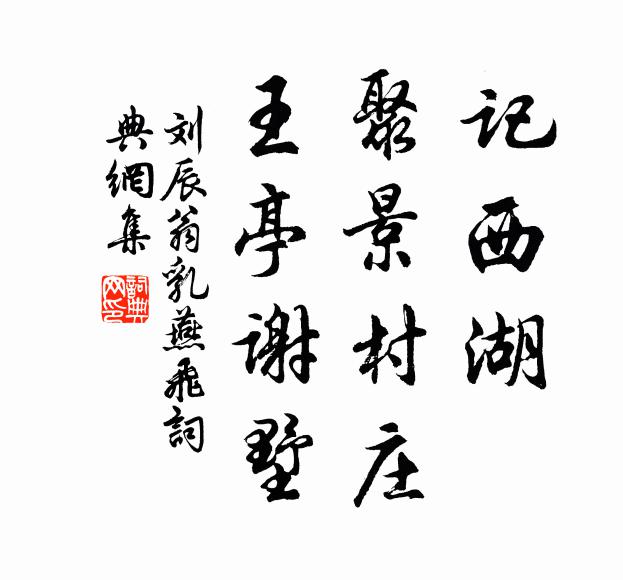 记西湖
聚景村庄
王亭谢墅
刘辰翁乳燕飛詞
典網集
詞典网印